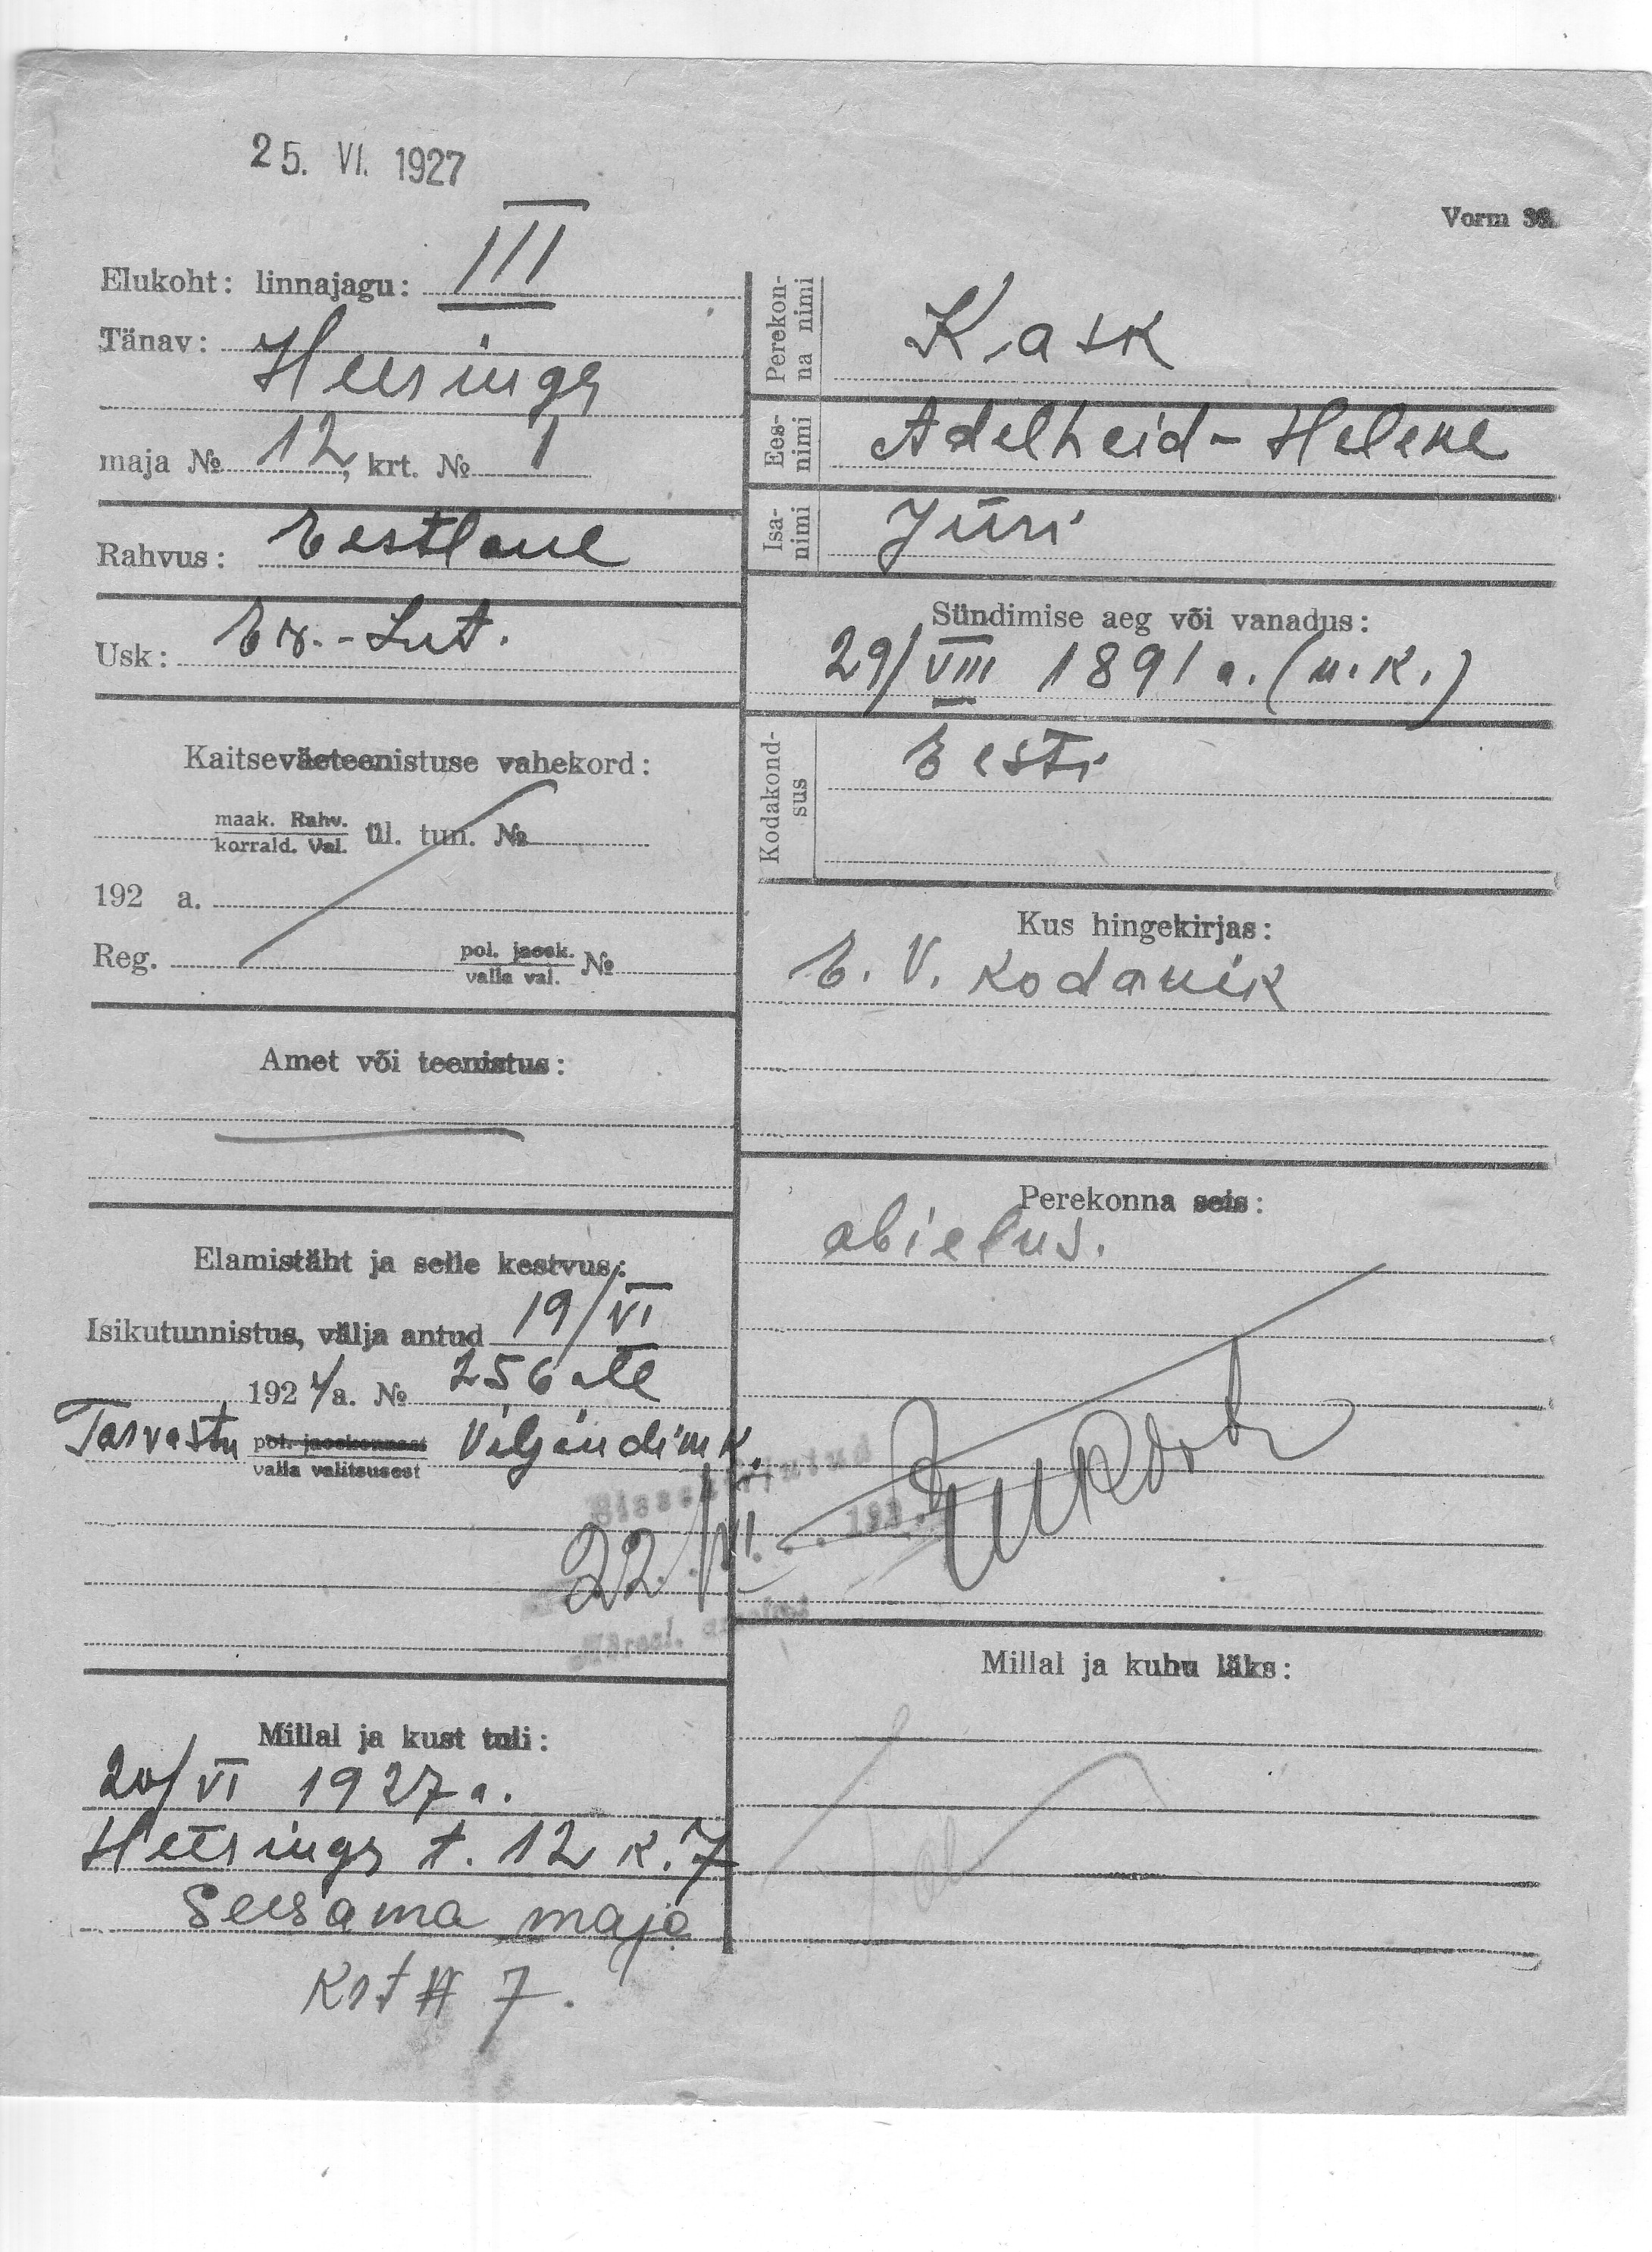 25. VI. 1927
Vorm
Elukoht: linnajagu: III
Tänav:
Heeringa
maja № 12, krt. № 1
Rahvus: Eestlane
Usk: Ev.-Lut.
Kaitseväeteenistuse vahekord:
maak. Rahv.
korrald. Val. ül. tun. №
192 a.
Reg. pol. jaosk. №
valla val.
Amet või teenistus:
Elamistäht ja selle kestvus:
Isikutunnistus, välja antud 19/VI
1924/a. № 256
Tarvastu pol. jaoskonnast Viljandi m K.
valla valitsusest
Sissekirjutud
22. VI. 192
Millal ja kust tuli:
20/VI 1927 a.
Heeringa t. 12 k. 7
Seesama maja
Krt # 7.
Perekonna nimi
Kask
Eesnimi
Adelheid-Helene
Isanimi
Jüri
Sündimise aeg või vanadus:
29/VIII 1891 a. (u. k.)
Kodakondsus
Eesti
Kus hingekirjas:
E. V. kodanik
Perekonna seis:
abielus.
Millal ja kuhu läks: